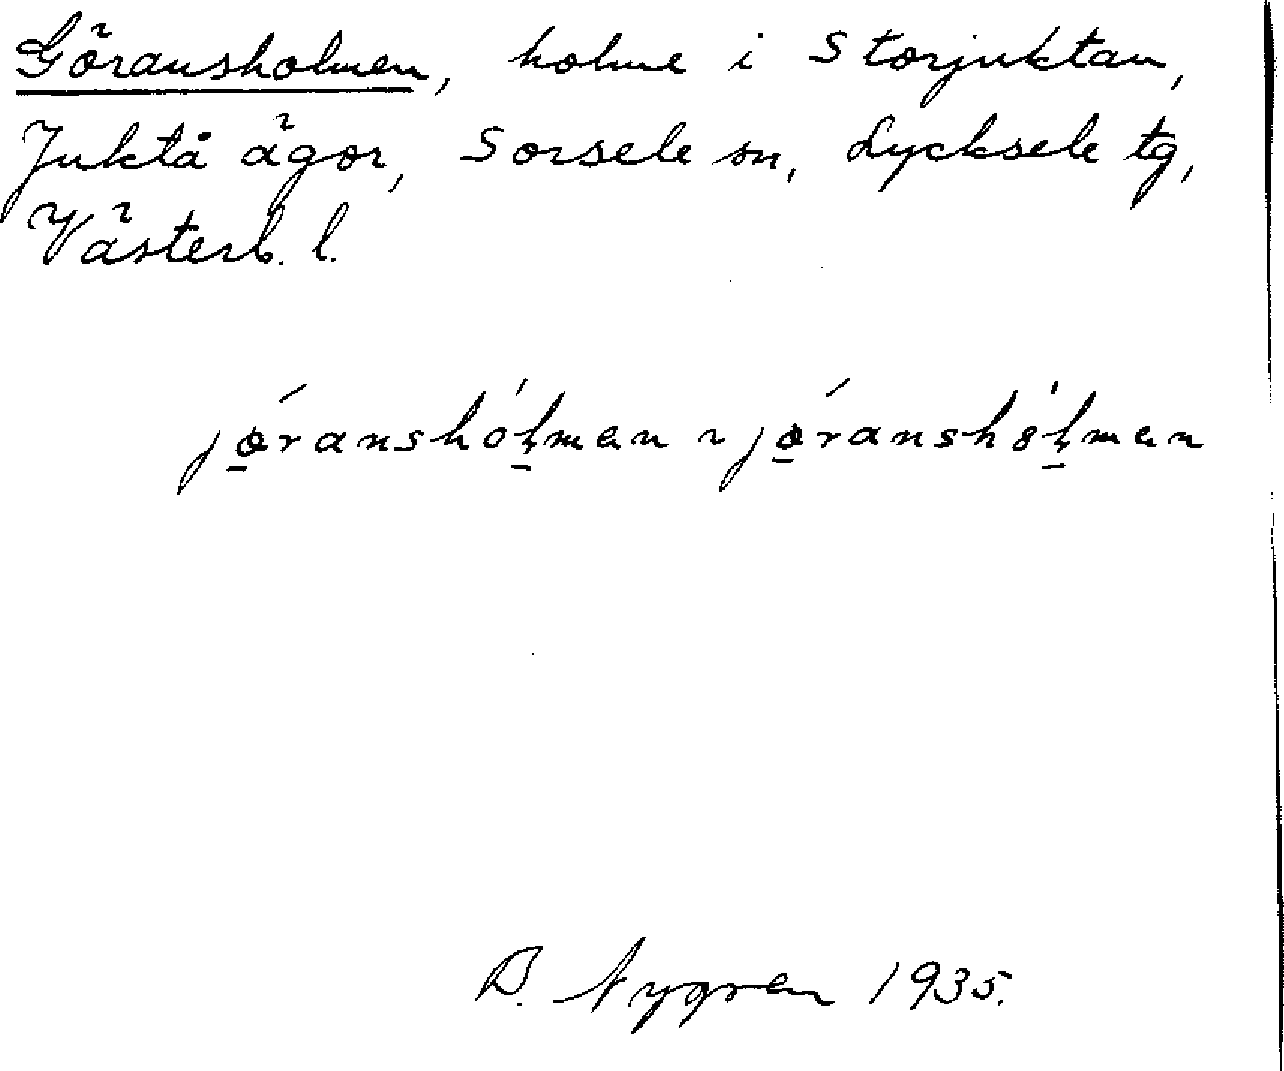 Göransholmen, holme i Storjuktan,
Juktå ägor, Sorsele sn, Lycksele tg,
Västerb. l.
jǿ̱ranshó̱lman ~ jǿ̱ransh8̱́lman
B. Nygren 1935.